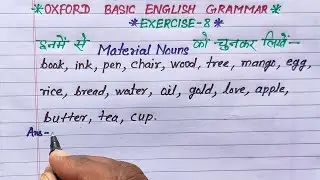 *OXFORD BASIC ENGLISH GRAMMAR*
*EXERCISE-8*
इनमें से Material Nouns को चुनकर लिखें-
book, ink, pen, chair, wood, tree, mango, egg,
rice, bread, water, oil, gold, love, apple,
butter, tea, cup.
Ans-